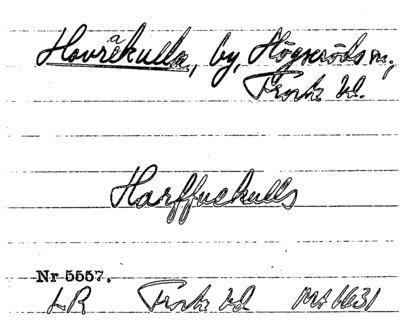 Hovräkulla, by, Högsröds sn.,
Frosta hd.
Harffuekulls
Nr 5557.
LR Frosta hd 1631